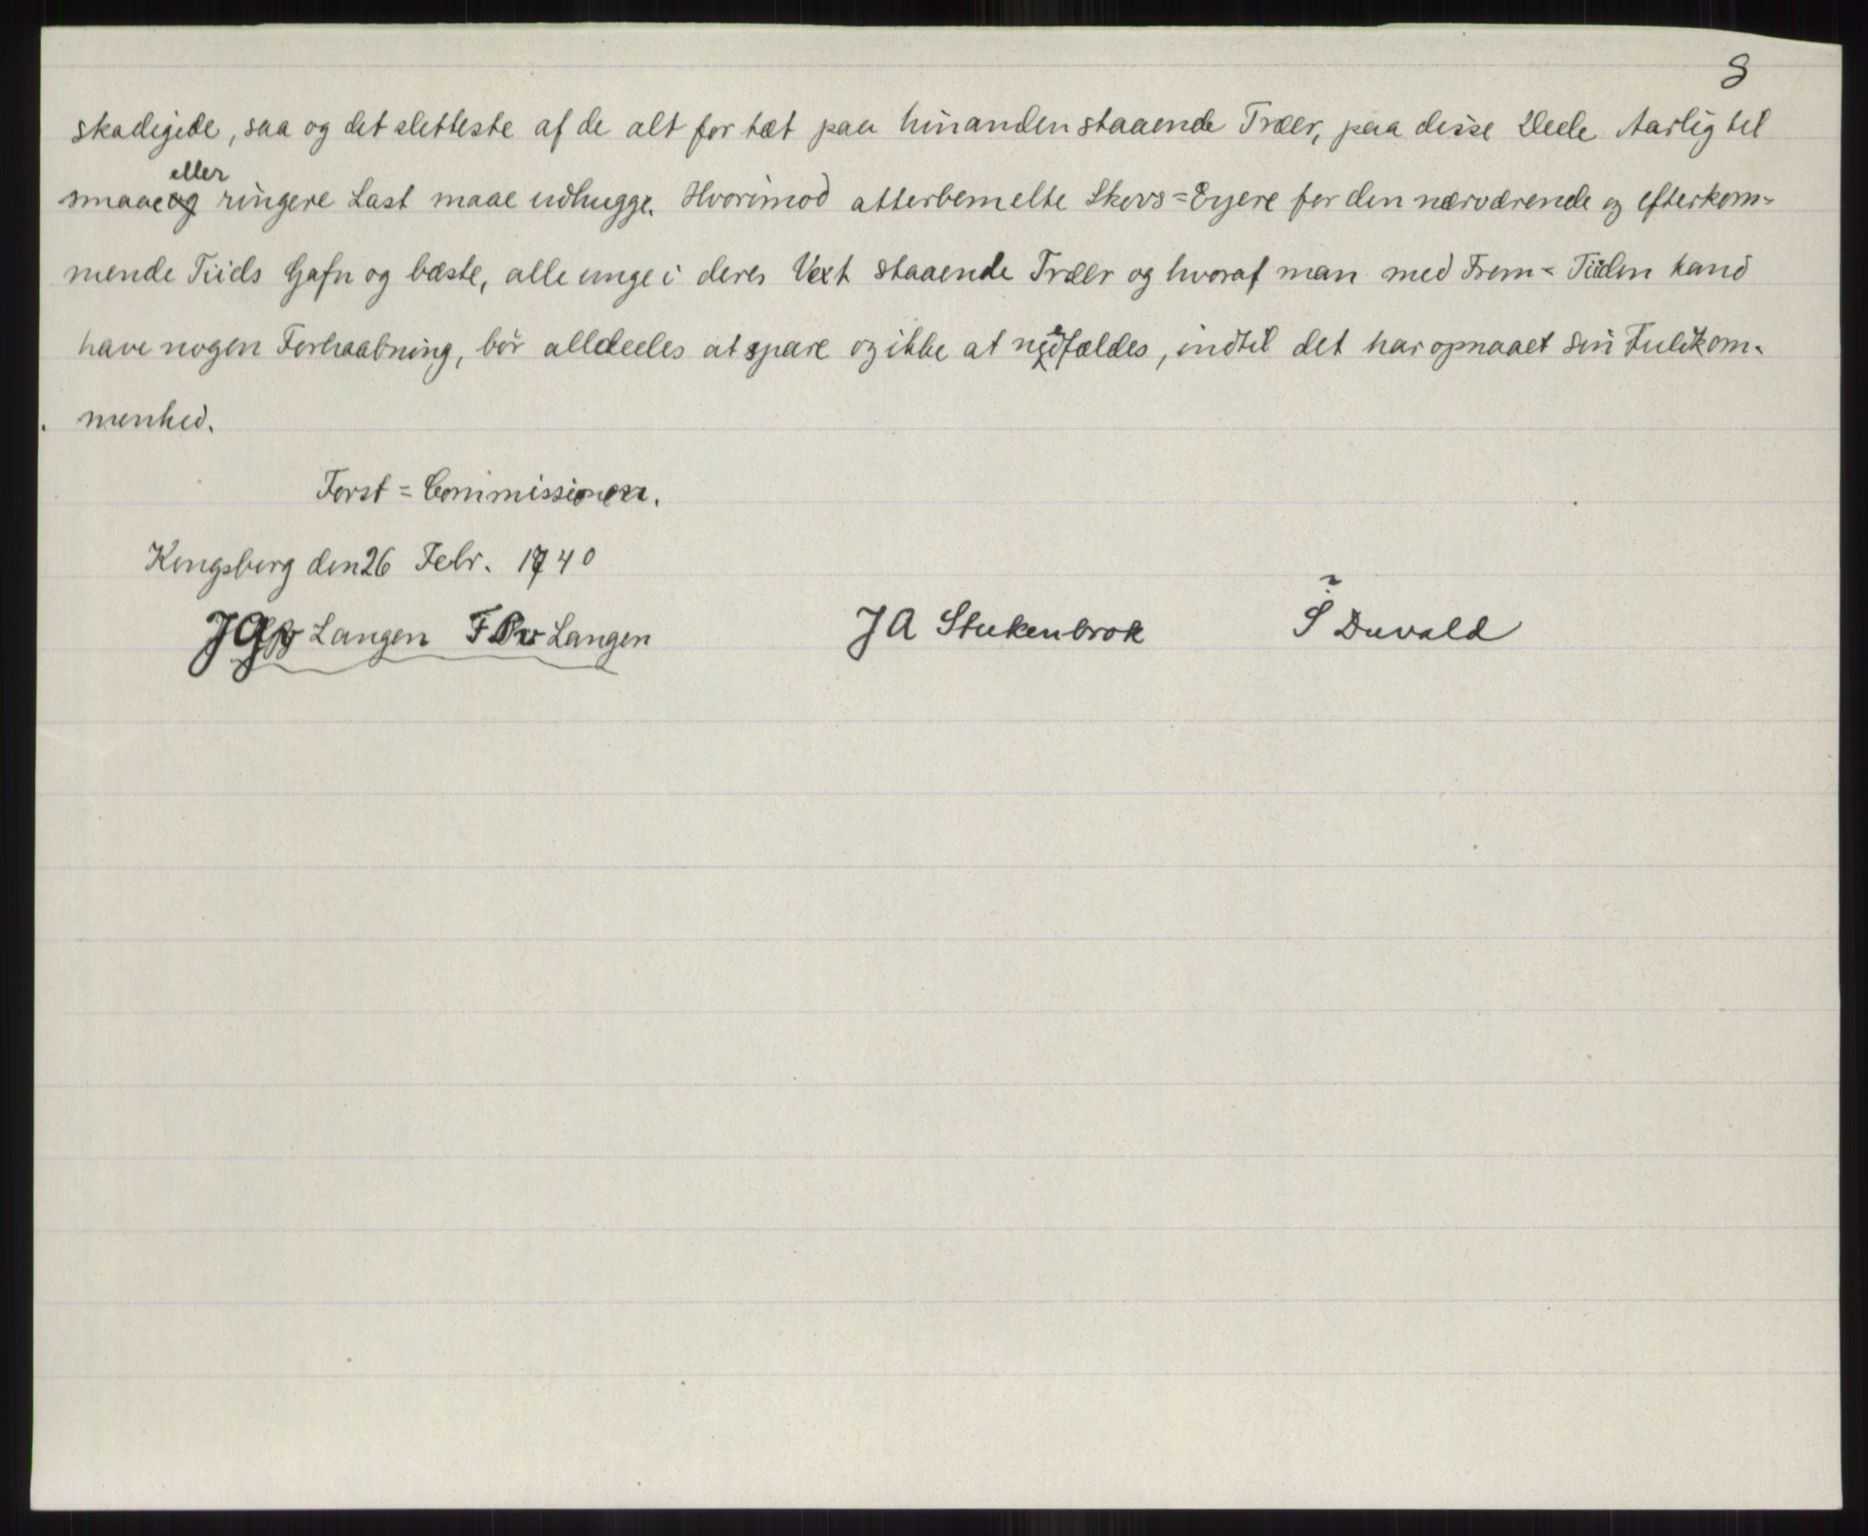 8
skadigede, saa og det sletteste af de alt for tæt paa hinanden staaende Træer, paa disse Deele Aarlig til
eller
smaae og ringere Last maae udhugge. Hvorimod atterbemelte Skovs=Eyere for den nærværende og efterkom=
mende Tiids Gafn og bæste, alle unge i deres Vext staaende Træer og hvoraf man med Frem=Tiiden kand
have nogen Forhaabning, bör alldeeles at spare og ikke at nedfældes, indtil det har opnaaet sin Fuldkom=
menhed.
Forst=Commissionen.
Kongsberg den 26 Febr. 1740
J G v Langen F P v Langen J A Stukenbrok ? S Duvald